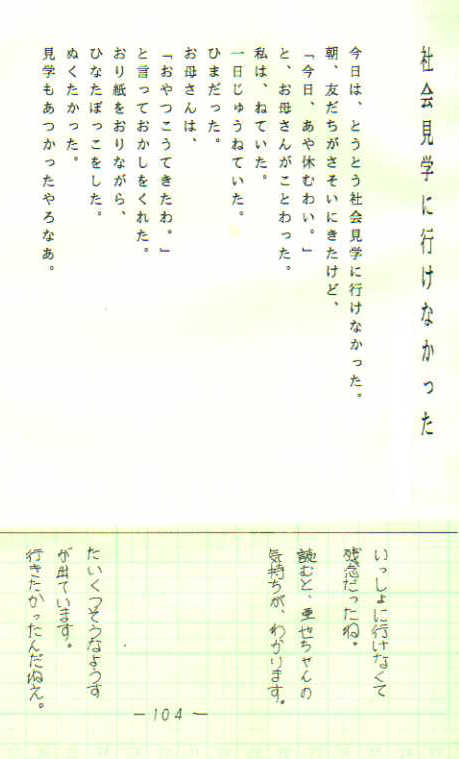 社会見学に行けなかった
今日は、とうとう社会見学に行けなかった。
朝、友だちがさそいにきたけど、
「今日、あや休むわい。」
と、お母さんがことわった。
私は、ねていた。
一日じゅうねていた。
ひまだった。
お母さんは、
「おやつこうてきたわ。」
と言っておかしをくれた。
おり紙をおりながら、
ひなたぼっこをした。
ぬくたかった。
見学もあつかったやろなあ。
いっしょに行けなくて
残念だったね。
読むと、亜也ちゃんの
気持ちが、わかります。
たいくつそうなようす
が出ています。
行きたかったんだねえ。
－104－